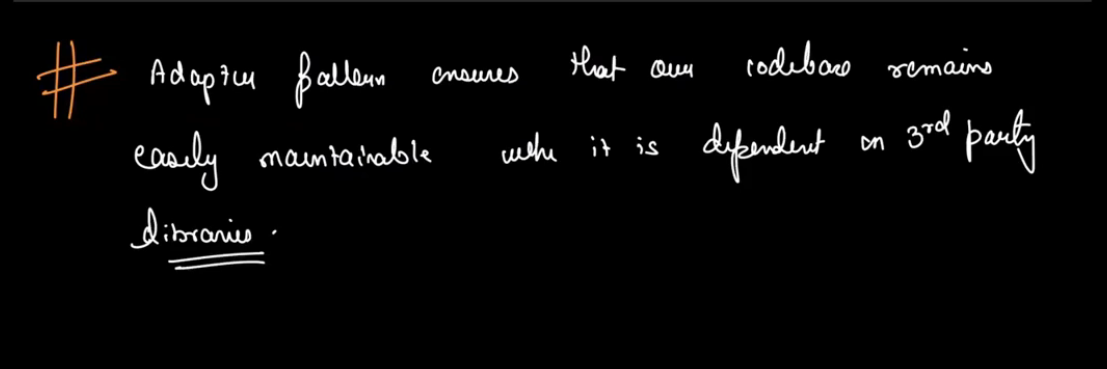 # Adapter pattern ensures that our codebase remains
easily maintainable when it is dependent on 3rd party
libraries.